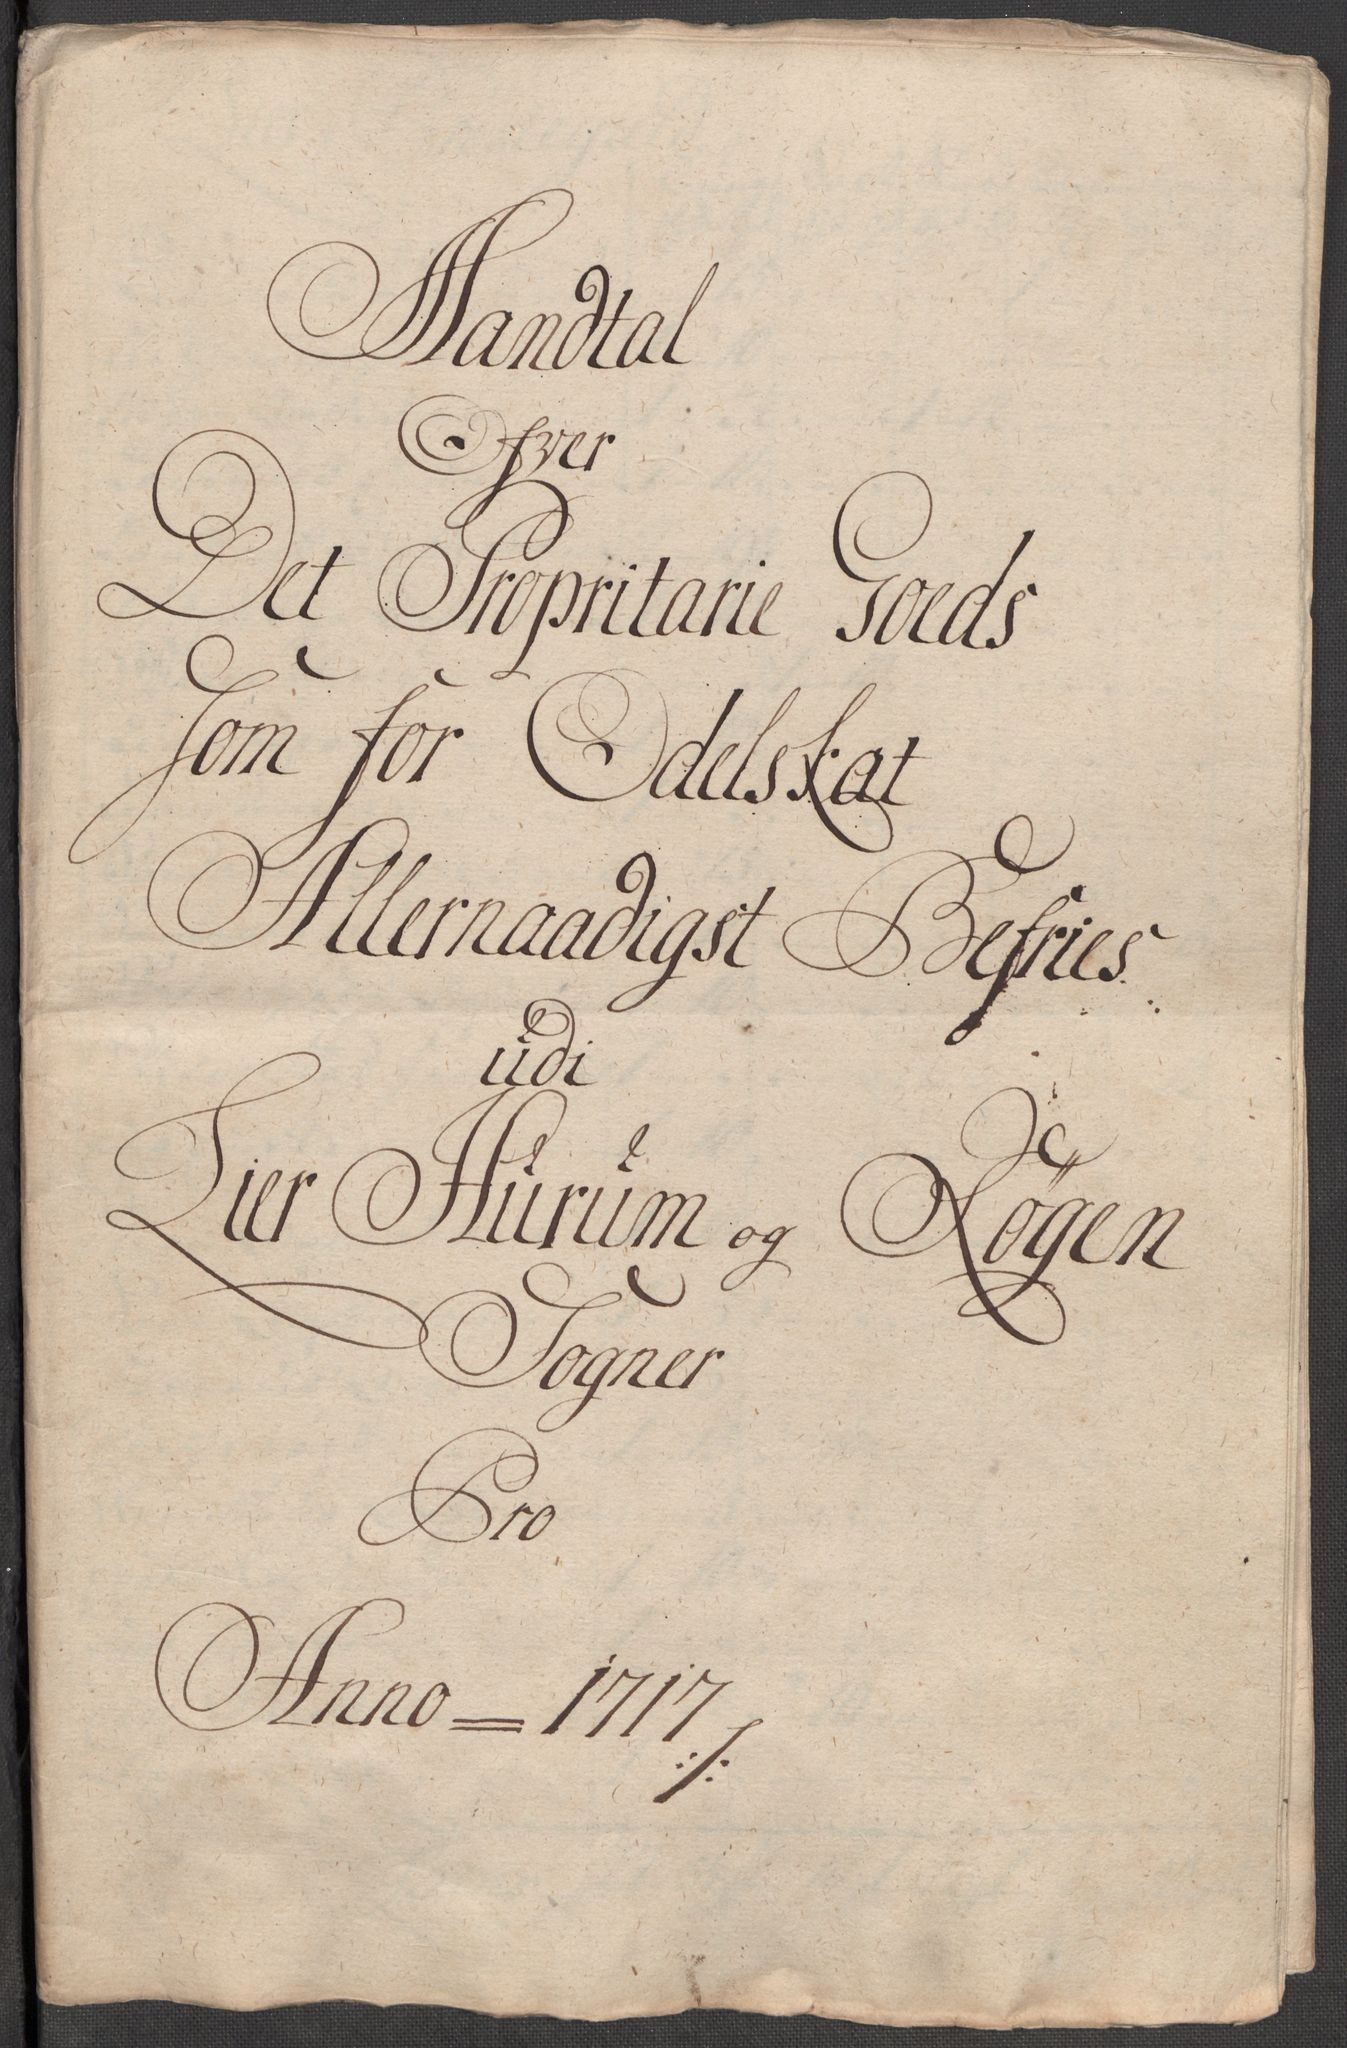 Mandtal
Ofver
Det Propritarie Goeds
som for Odelskat
Allernaadigst Befries
udi
Lier Hurum og Røgen
Sogner
Pro
Anno = 1717 ://: